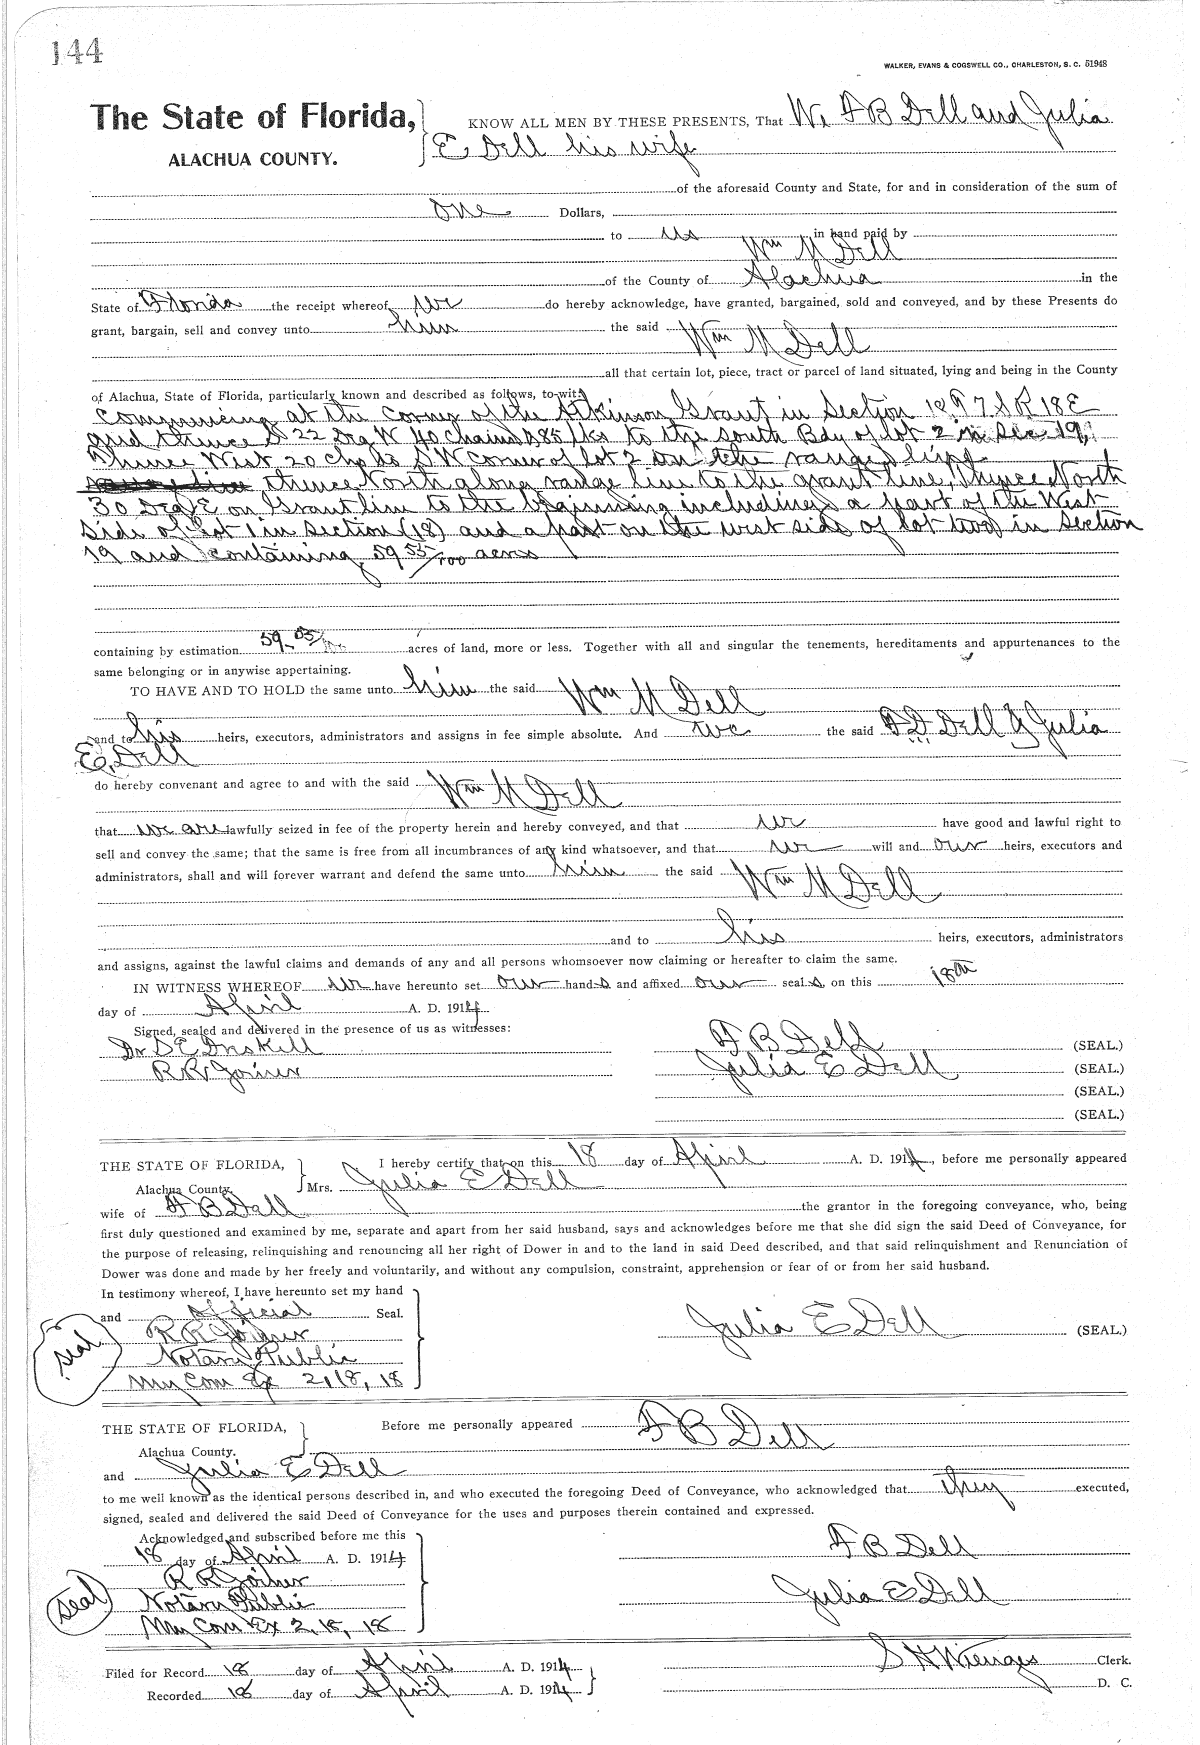 144
WALKER, EVANS & COGSWELL CO., CHARLESTON, S. C. 51948
The State of Florida, KNOW ALL MEN BY THESE PRESENTS, That We B Dell and Julia
ALACHUA COUNTY. E Dell his wife
of the aforesaid County and State, for and in consideration of the sum of
one Dollars,
to us in hand paid by
Wm M Dell
of the County of Alachua in the
State of Florida the receipt whereof we do hereby acknowledge, have granted, bargained, sold and conveyed, and by these Presents do
grant, bargain, sell and convey unto him the said Wm M Dell
all that certain lot, piece, tract or parcel of land situated, lying and being in the County
of Alachua, State of Florida, particularly known and described as follows, to-wit:
Commencing at the corner of the Atkinson Grant in Section 18 T 7 S R 18 E
and thence S 22 Deg W 40 chains & 85 lks to the south Bdy of lot 2 in Sec 19,
Thence West 20 Chs to SW corner of lot 2 on the range line
thence North along range line to the grant line, Thence North
30 Deg E on Grant line to the beginning including a part of the West
side of Lot 1 in Section (18) and a part on the west side of lot two in Section
19 and containing 59 55/100 acres
containing by estimation 59 55/100 acres of land, more or less. Together with all and singular the tenements, hereditaments and appurtenances to the
same belonging or in anywise appertaining.
TO HAVE AND TO HOLD the same unto him the said Wm M Dell
and to his heirs, executors, administrators and assigns in fee simple absolute. And we the said Dell & Julia
E. Dell
do hereby convenant and agree to and with the said Wm M Dell
that we are lawfully seized in fee of the property herein and hereby conveyed, and that we have good and lawful right to
sell and convey the same; that the same is free from all incumbrances of any kind whatsoever, and that we will and our heirs, executors and
administrators, shall and will forever warrant and defend the same unto him the said Wm M Dell
and to his heirs, executors, administrators
and assigns, against the lawful claims and demands of any and all persons whomsoever now claiming or hereafter to claim the same.
IN WITNESS WHEREOF we have hereunto set our hands and affixed our seals on this 18th
day of April A. D. 1914
Signed, sealed and delivered in the presence of us as witnesses:
Dr D E Inskill B Dell (SEAL.)
R R Joiner Julia E Dell (SEAL.)
(SEAL.)
(SEAL.)
THE STATE OF FLORIDA, I hereby certify that on this 18 day of April A. D. 1914, before me personally appeared
Alachua County. Mrs. Julia E Dell
wife of B Dell the grantor in the foregoing conveyance, who, being
first duly questioned and examined by me, separate and apart from her said husband, says and acknowledges before me that she did sign the said Deed of Conveyance, for
the purpose of releasing, relinquishing and renouncing all her right of Dower in and to the land in said Deed described, and that said relinquishment and Renunciation of
Dower was done and made by her freely and voluntarily, and without any compulsion, constraint, apprehension or fear of or from her said husband.
In testimony whereof, I have hereunto set my hand
and official Seal.
seal R R Joiner Julia E Dell (SEAL.)
Notary Public
My Com Ex 2, 18, 18
THE STATE OF FLORIDA, Before me personally appeared B Dell
Alachua County.
and Julia E Dell
to me well known as the identical persons described in, and who executed the foregoing Deed of Conveyance, who acknowledged that they executed,
signed, sealed and delivered the said Deed of Conveyance for the uses and purposes therein contained and expressed.
Acknowledged and subscribed before me this
18 day of April A. D. 1914 B Dell
R R Joiner
seal Notary Public Julia E Dell
My Com Ex 2, 18, 18
Filed for Record 18 day of April A. D. 1914 S H Wienges Clerk.
Recorded 18 day of April A. D. 1914 D. C.